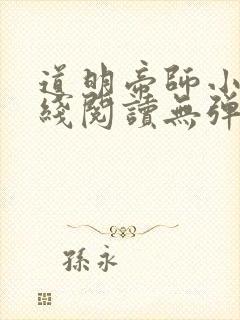 道明帝師小
綫閱讀無彈
孫永